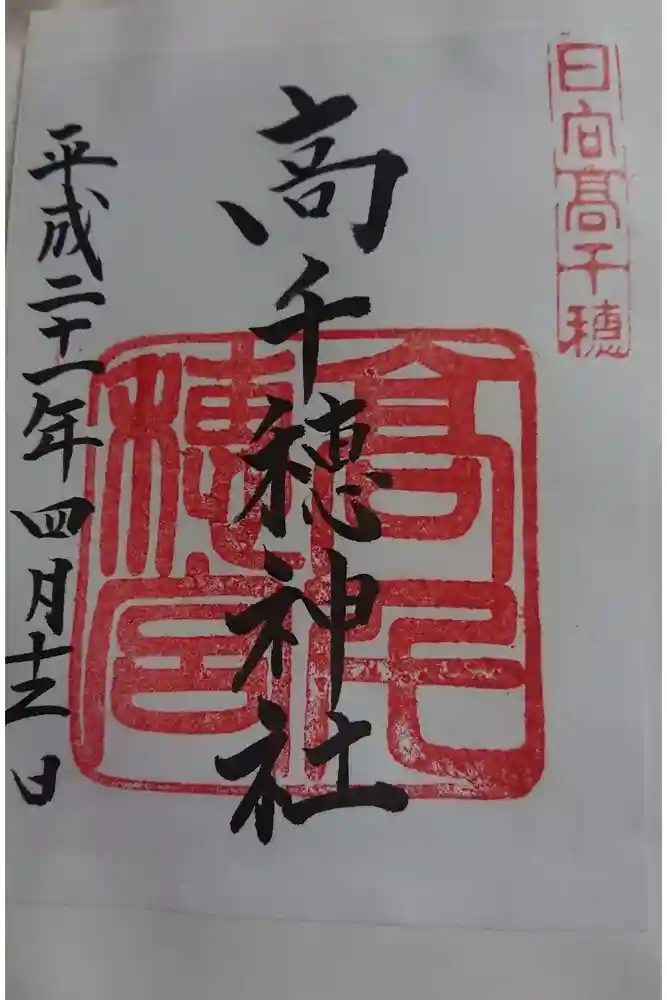 日向高千穂
高千穂神社
平成二十一年四月十三日
高千穂宮